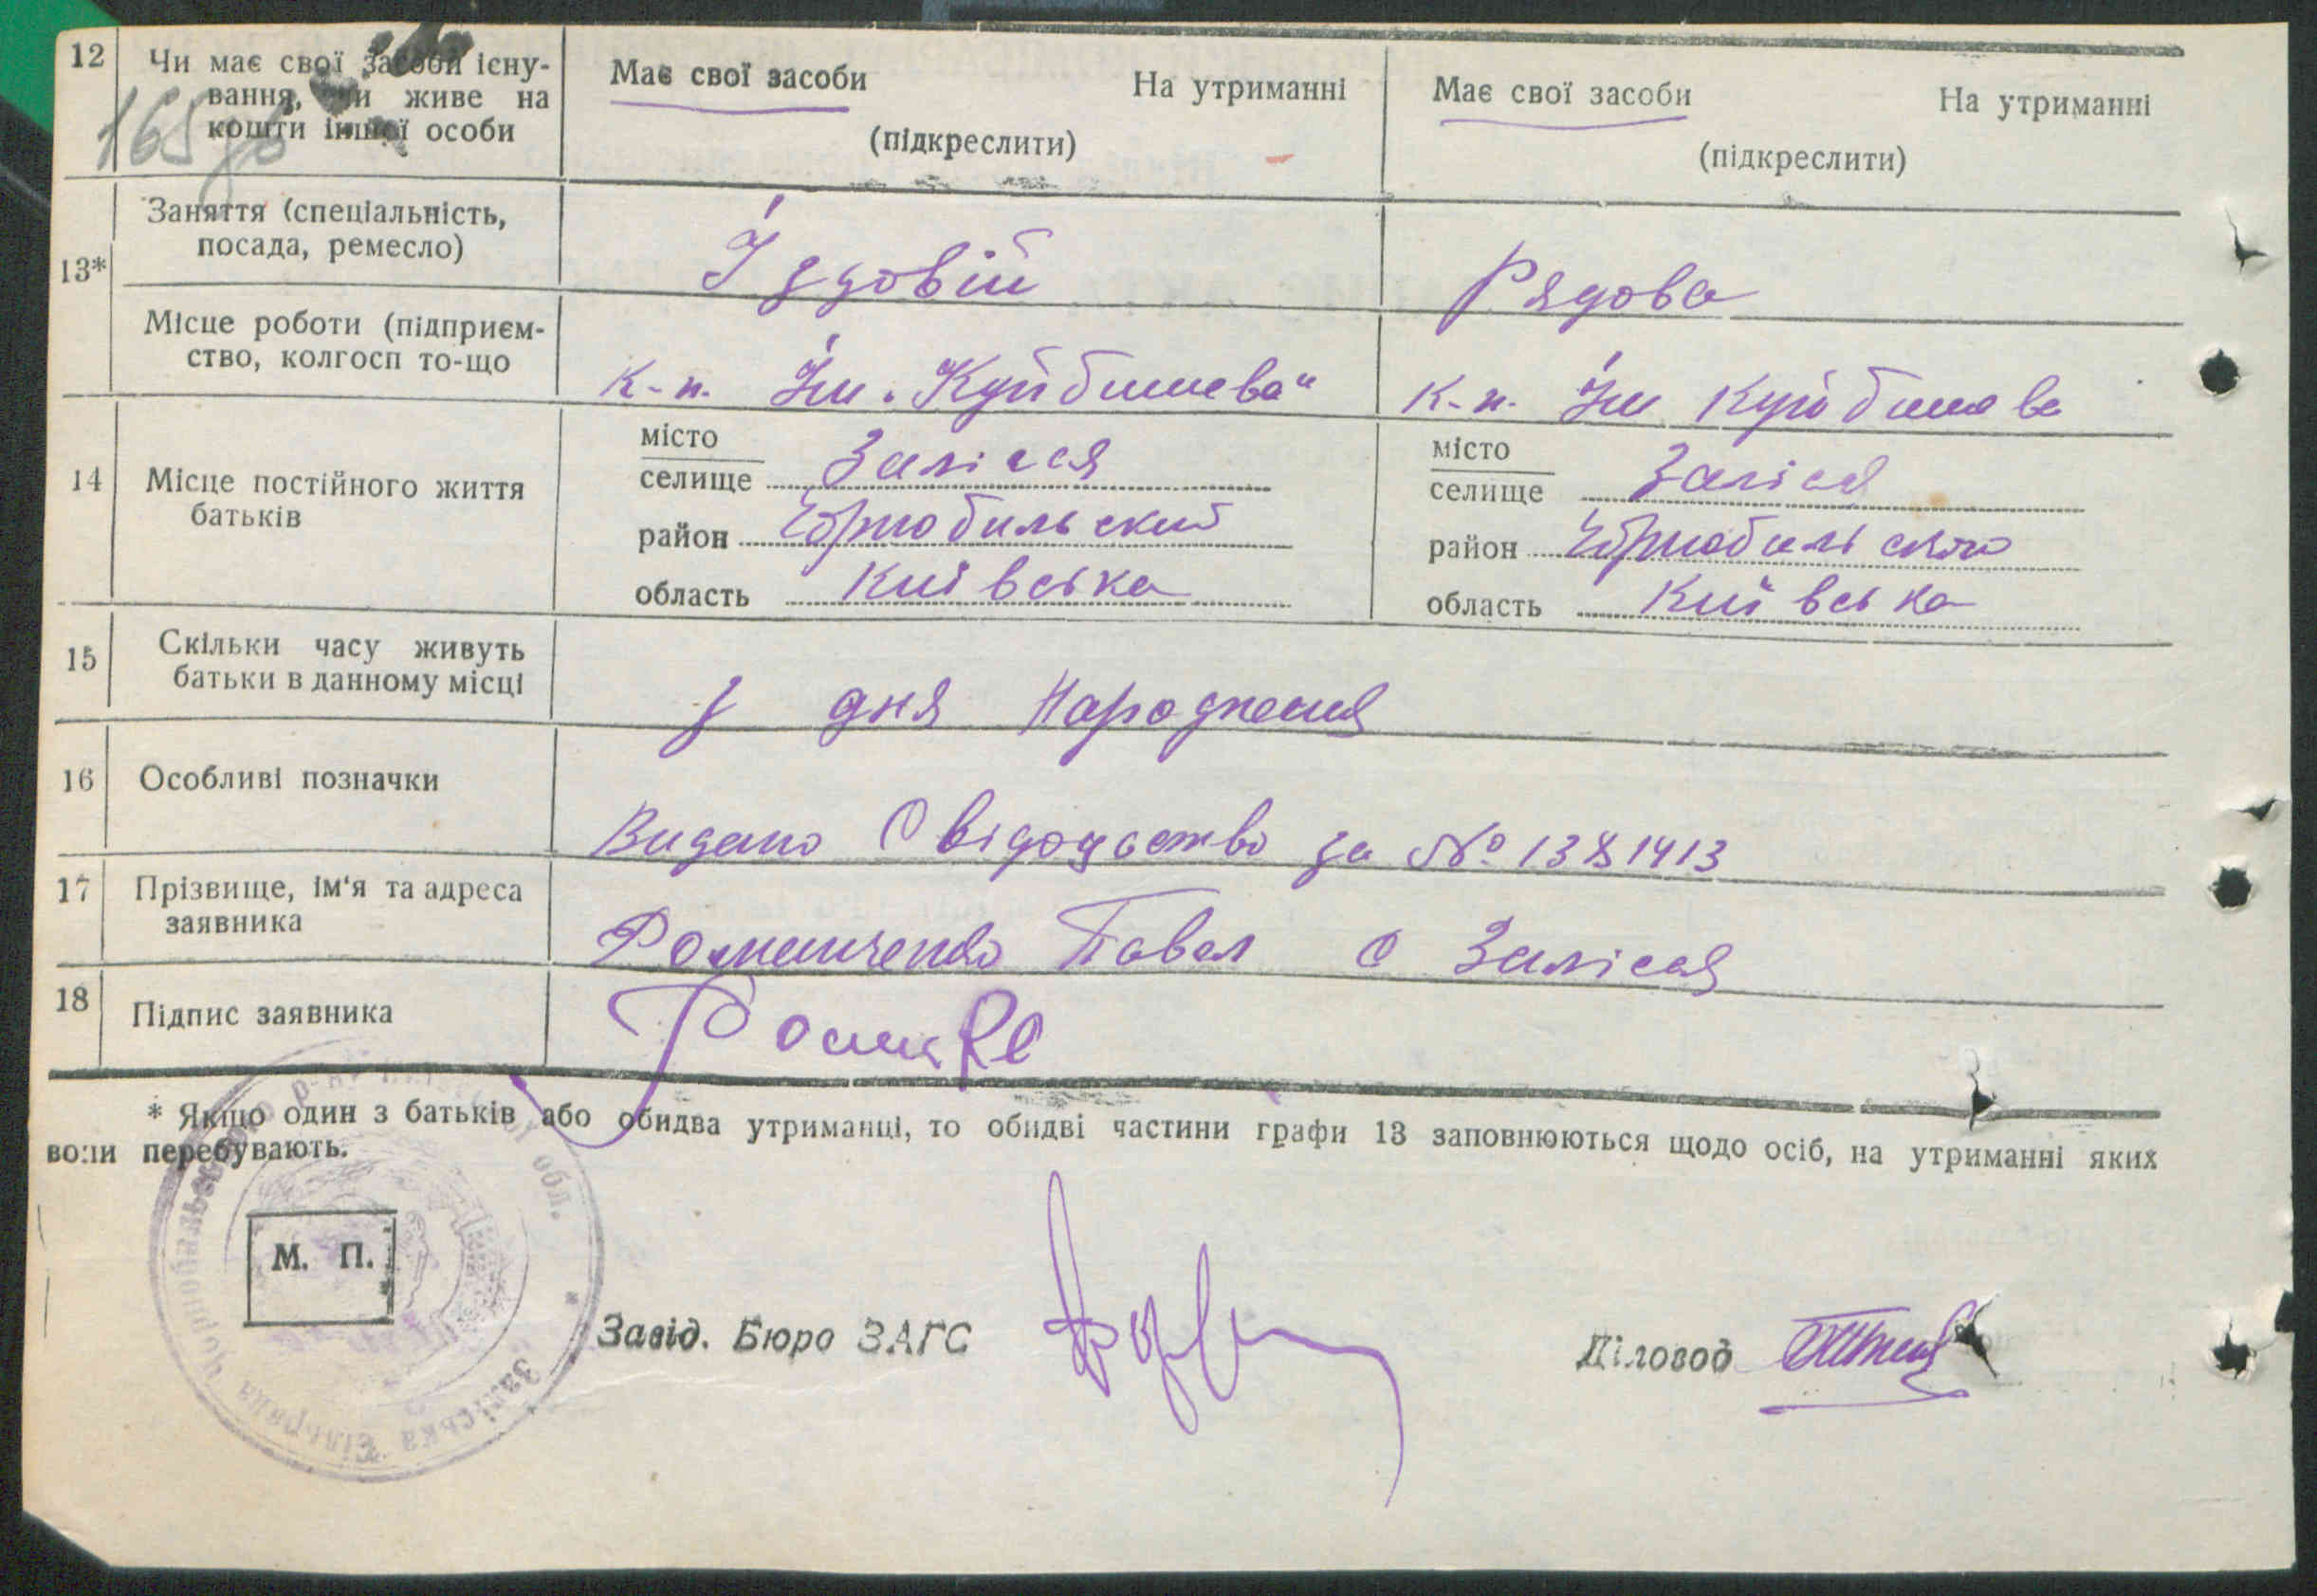 12 Чи має свої засоби існу-
вання, чи живе на
кошти іншої особи
Має свої засоби На утриманні
(підкреслити)
Має свої засоби На утриманні
(підкреслити)
165
13*
Заняття (спеціальність,
посада, ремесло)
Їздовій
Рядова
Місце роботи (підприєм-
ство, колгосп то-що
к-п. Ім. Куйбишева"
к-п. Ім Куйбишева
14 Місце постійного життя
батьків
місто
селище Залісся
район Чорнобильский
область Київська
місто
селище Заліся
район Чорнобильского
область Київська
15 Скільки часу живуть
батьки в данному місці
З дня Народження
16 Особливі позначки
Видано Свідоцтво за № 1381413
17 Прізвище, ім'я та адреса
заявника
Романченко Павел С Залісся
18 Підпис заявника
* Якщо один з батьків або обидва утриманці, то обидві частини графи 13 заповнюються щодо осіб, на утриманні яких
вони перебувають.
М. П.
Завід. Бюро ЗАГС
Діловод
Чорнобильського р-ну Київської обл. * Заліська Сільрада